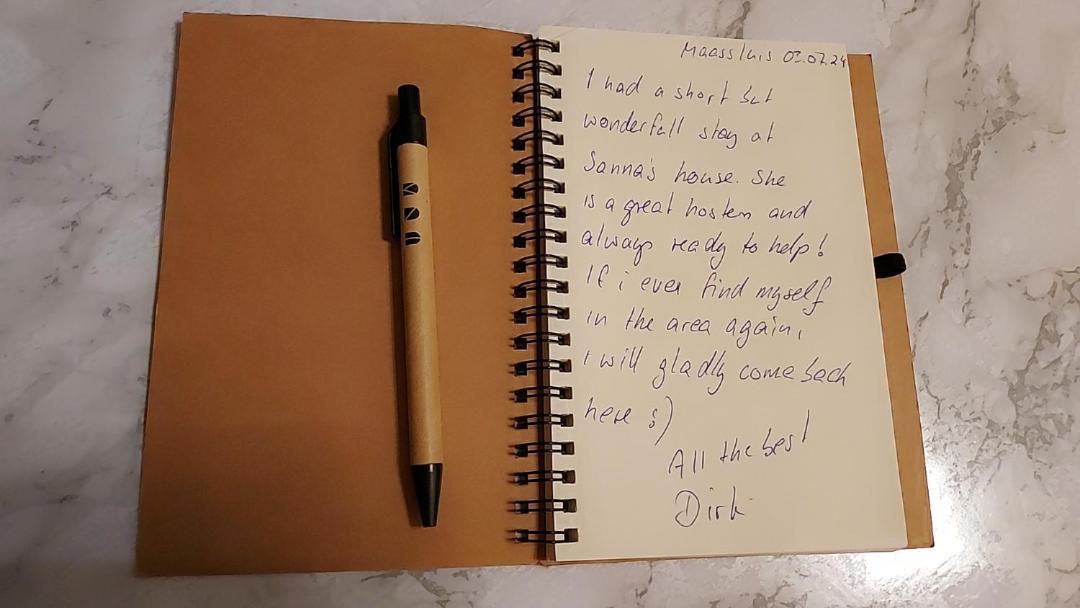 Maassluis 03.07.24
I had a short but
wonderfull stay at
Sanna's house. She
is a great hostem and
always ready to help!
If i ever find myself
in the area again,
i will gladly come back
here :)
All the best
Dirk